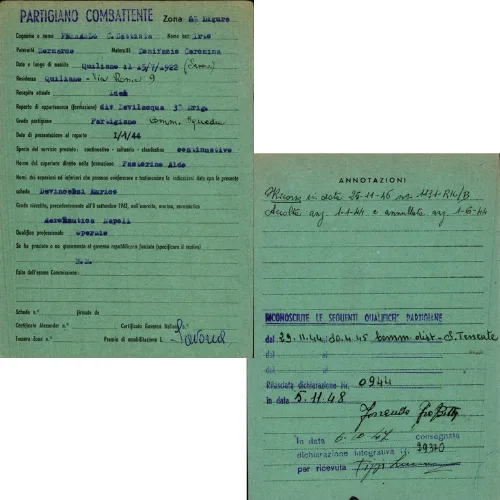 PARTIGIANO COMBATTENTE Zona 6ª Ligure
Cognome e nome FERRANDO G.Battista Nome batt. Irio
Paternità Bernardo Maternità Bonifazio Caronina
Data e luogo di nascita Quiliano il 15/7/1922 (Savona)
Residenza Quiliano - Via Roma 9
Recapito attuale Idem
Reparto di appartenenza (formazione) div Bevilacqua 3ª Brig.
Grado partigiano Partigiano Comm. Squadra
Data di presentazione al reparto 1/1/44
Specie del servizio prestato: continuativo - saltuario - clandestino continuativo
Nome del superiore diretto nella formazione Pastorino Aldo
Nomi dei superiori ed inferiori che possono confermare e testimoniare le indicazioni date con la presente
schede Devincenzi Enrico
Grado rivestito, precedentemente all'8 settembre 1943, nell'esercito, marina, aeronautica
Aeronautica Napoli
Qualifica professionale operaio
Se ha prestato o no giuramento al governo repubblicano fascista (specificare il motivo)
N.N.
Esito dell'esame Commissione:
Scheda n.° firmata da
Certificato Alexander n.° Certificato Governo Italiano n.°
Tessera Zona n.° Premio di smobilitazione L. Savona
ANNOTAZIONI
Ricorso in data 25-11-46 n° 1131 RIC/B
RICONOSCIUTE LE SEGUENTI QUALIFICHE PARTIGIANE
dal 29.11.44 30.4.45 Comm. dist. - S. Tenente
dal al
dal al
Rilasciata dichiarazione Nr. 0944
in data 5.11.48
In data 6-10-47 consegnata
dichiarazione integrativa N.
per ricevuta